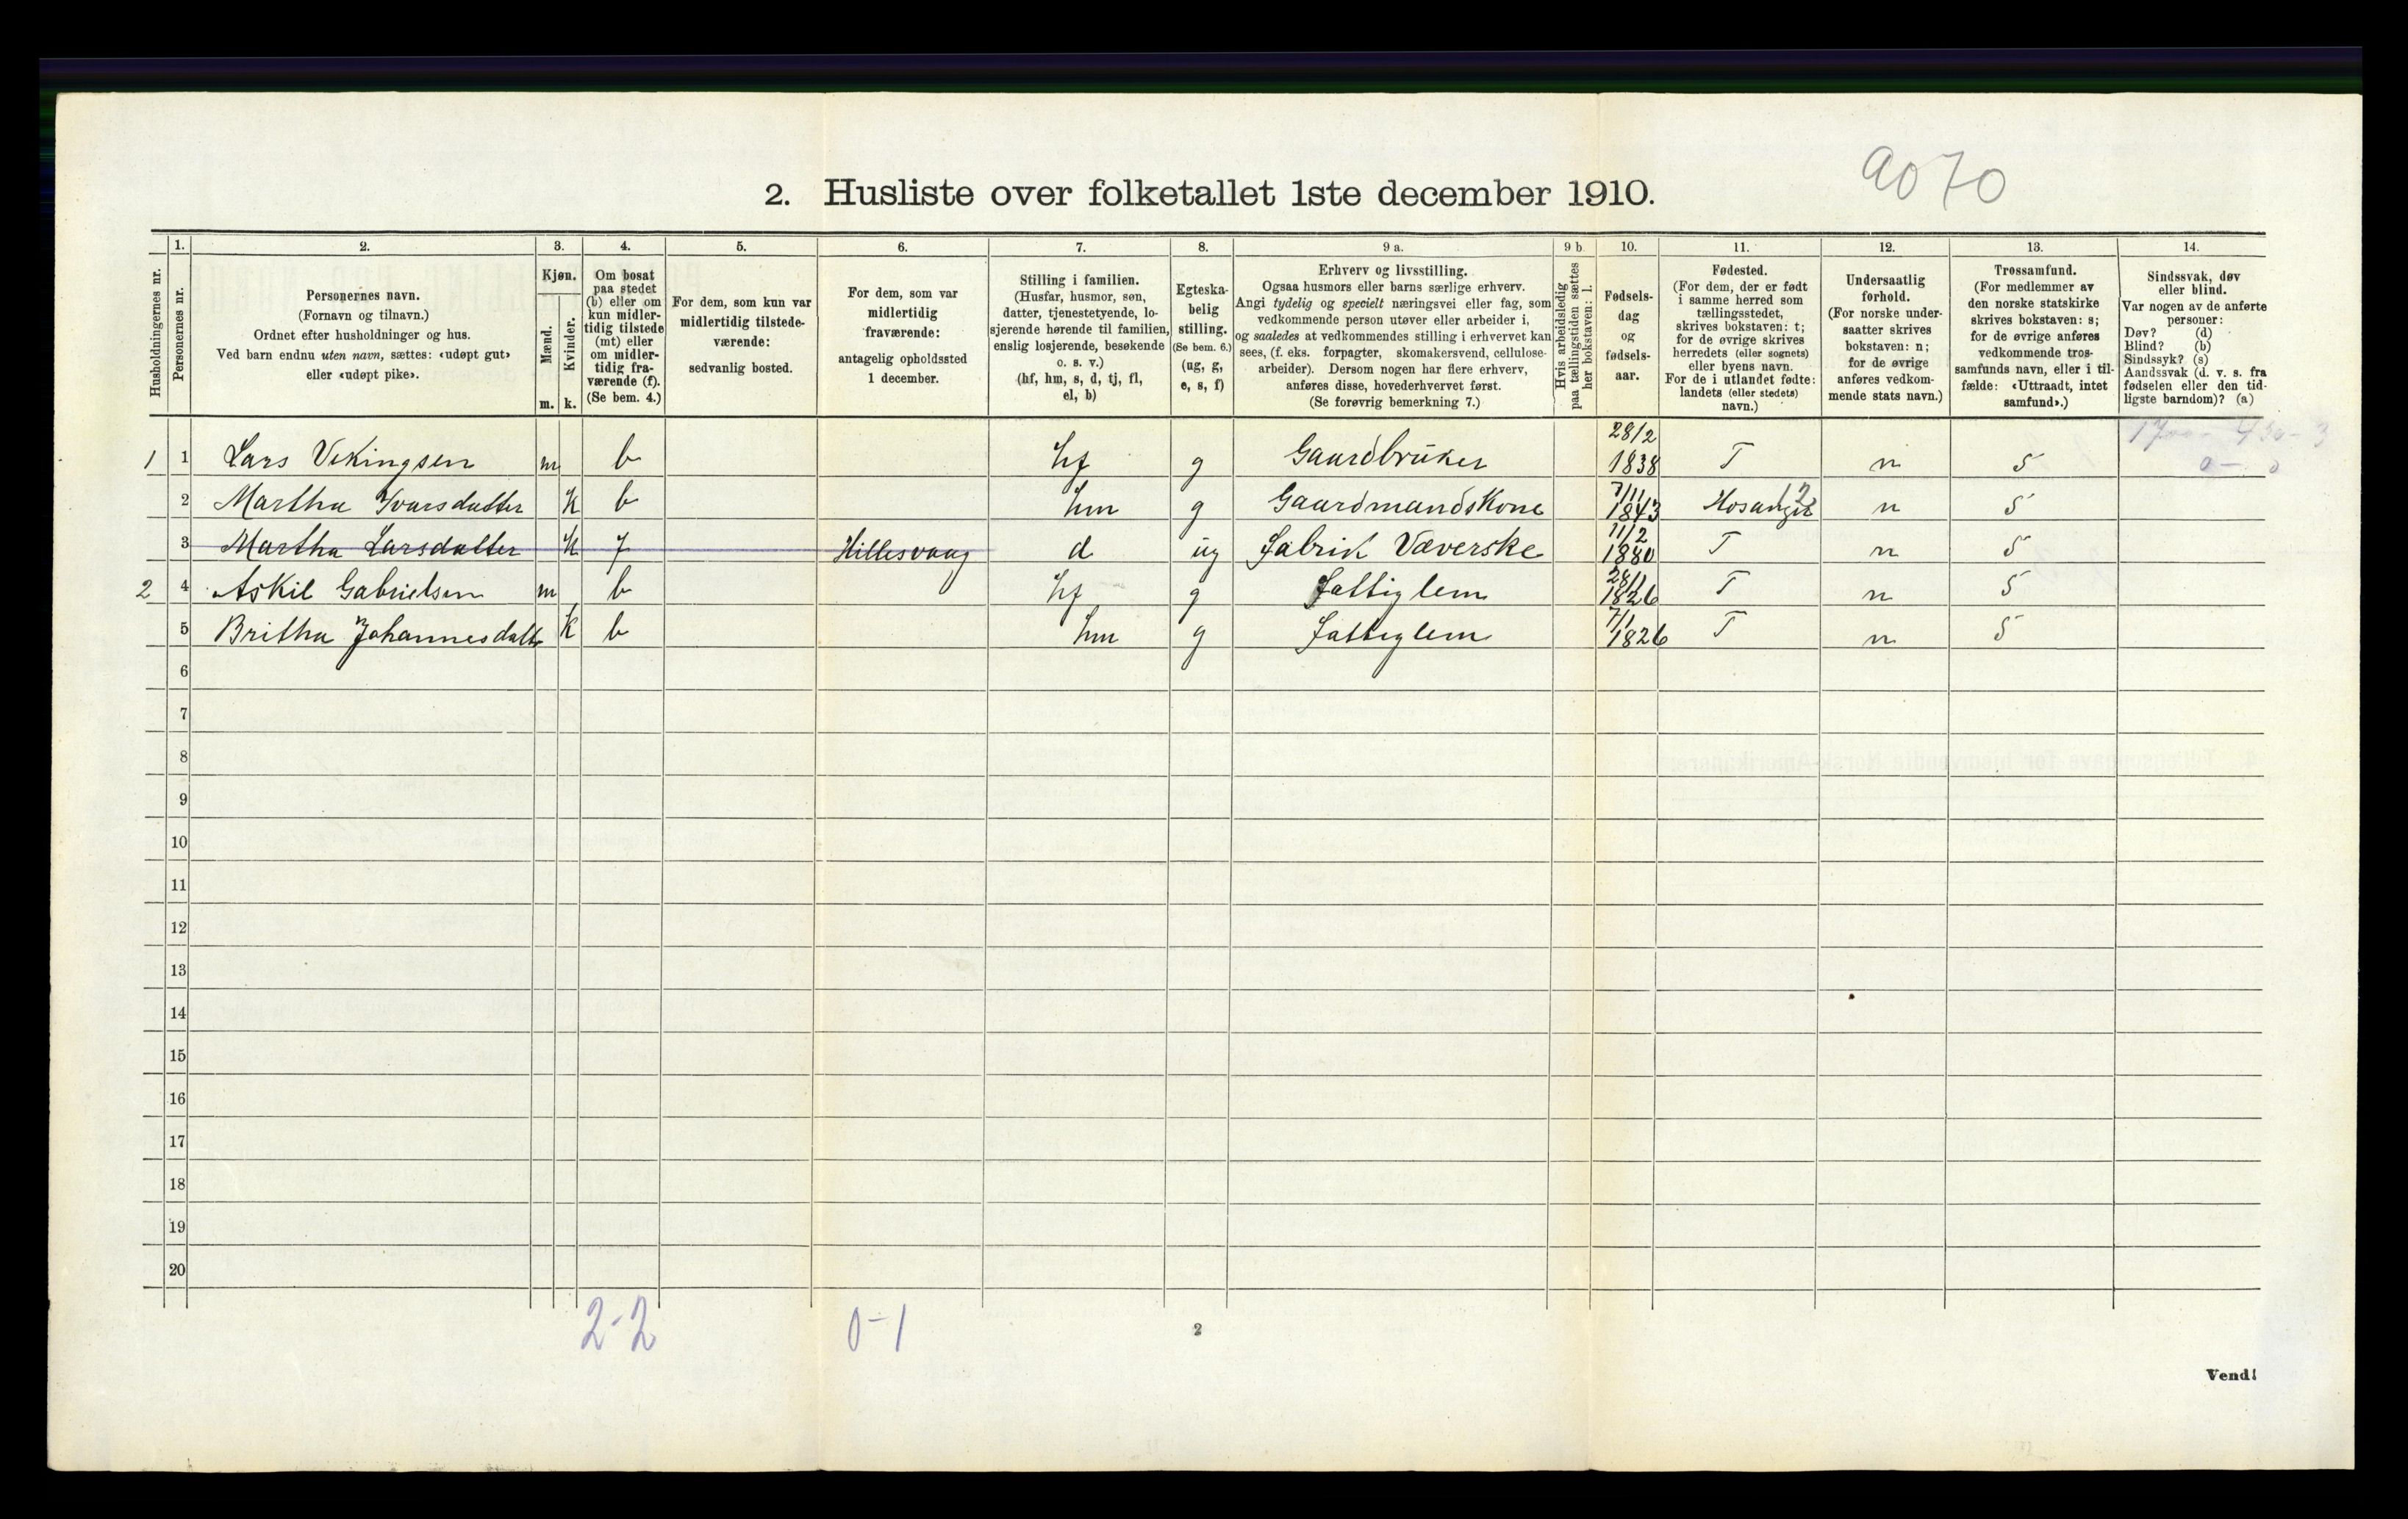 9070
2. Husliste over folketallet 1ste december 1910.
Husholdningernes nr.
1.
Personernes nr.
2.
Personernes navn.
(Fornavn og tilnavn.)
Ordnet efter husholdninger og hus.
Ved barn endnu uten navn, sættes: «udøpt gut»
eller «udøpt pike».
3.
Kjøn.
Mænd.
m.
Kvinder.
k.
4.
Om bosat
paa stedet
(b) eller om
kun midler-
tidig tilstede
(mt) eller
om midler-
tidig fra-
værende (f).
(Se bem. 4.)
5.
For dem, som kun var
midlertidig tilstede-
værende:
sedvanlig bosted.
6.
For dem, som var
midlertidig
fraværende:
antagelig opholdssted
1 december.
7.
Stilling i familien.
(Husfar, husmor, søn,
datter, tjenestetyende, lo-
sjerende hørende til familien,
enslig losjerende, besøkende
o. s. v.)
(hf, hm, s, d, tj, fl,
el, b)
8.
Egteska-
belig
stilling.
(Se bem. 6.)
(ug, g,
e, s, f)
9 a.
Erhverv og livsstilling.
Ogsaa husmors eller barns særlige erhverv.
Angi tydelig og specielt næringsvei eller fag, som
vedkommende person utøver eller arbeider i,
og saaledes at vedkommendes stilling i erhvervet kan
sees, (f. eks. forpagter, skomakersvend, cellulose-
arbeider). Dersom nogen har flere erhverv,
anføres disse, hovederhvervet først.
(Se forøvrig bemerkning 7.)
9 b
Hvis arbeidsledig
paa tællingstiden sættes
her bokstaven: l.
10.
Fødsels-
dag
og
fødsels-
aar.
11.
Fødested.
(For dem, der er født
i samme herred som
tællingsstedet,
skrives bokstaven: t;
for de øvrige skrives
herredets (eller sognets)
eller byens navn.
For de i utlandet fødte:
landets (eller stedets)
navn.)
12.
Undersaatlig
forhold.
(For norske under-
saatter skrives
bokstaven: n;
for de øvrige
anføres vedkom-
mende stats navn.)
13.
Trossamfund.
(For medlemmer av
den norske statskirke
skrives bokstaven: s;
for de øvrige anføres
vedkommende tros-
samfunds navn, eller i til-
fælde: «Uttraadt, intet
samfund».)
14.
Sindssvak, døv
eller blind.
Var nogen av de anførte
personer:
Døv? (d)
Blind? (b)
Sindssyk? (s)
Aandssvak (d. v. s. fra
fødselen eller den tid-
ligste barndom)? (a)
1 1 Lars Vikingsen m b hf g Gaardbruker 28/2 1838 T n S
2 Martha Ivarsdatter K b hm g Gaardmandskone 7/11 1843 Hosanger 12 n S
3 Martha Larsdatter K f Hillesvaag d ug Fabrik Væverske 11/2 1880 T n S
2 4 Askil Gabrielsen m b hf g Fattiglem 28/1 1826 T n S
5 Britha Johannesdatt K b hm g Fattiglem 7/1 1826 T n S
6
7
8
9
10
11
12
13
14
15
16
17
18
19
20
2-2 0-1
2
Vend!